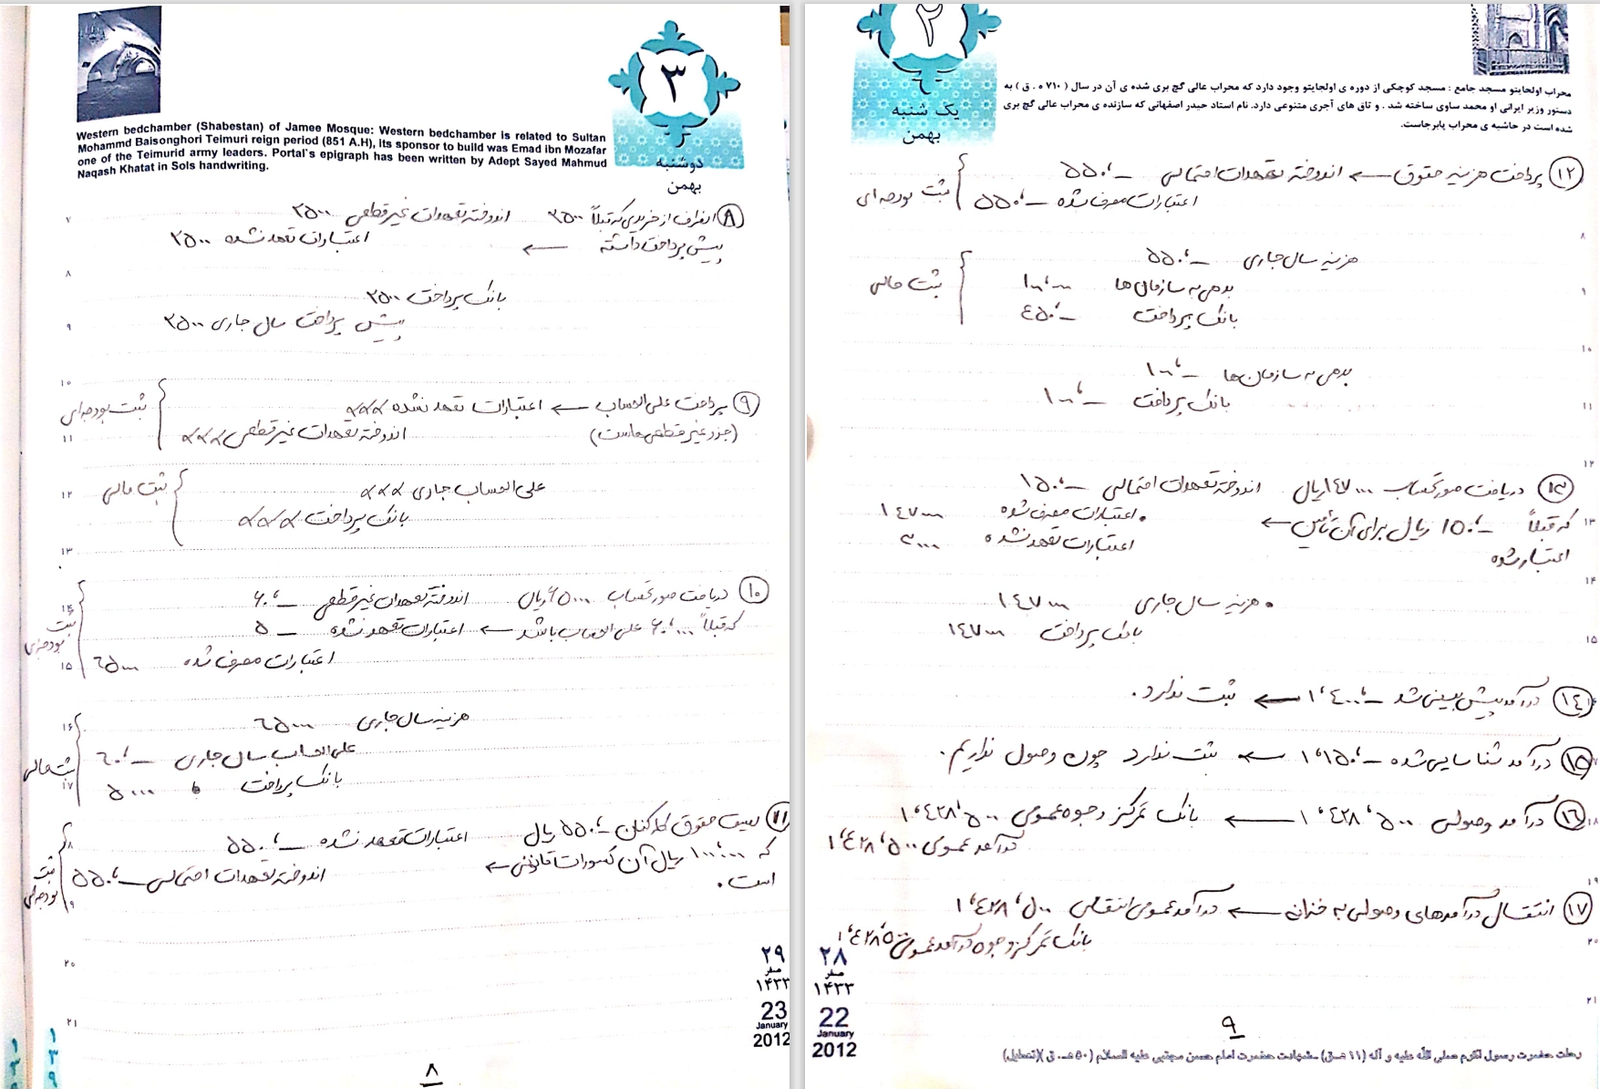 Western bedchamber (Shabestan) of Jamee Mosque: Western bedchamber is related to Sultan
Mohammd Baisonghori Teimuri reign period (851 A.H), Its sponsor to build was Emad ibn Mozafar
one of the Teimurid army leaders. Portal`s epigraph has been written by Adept Sayed Mahmud
Naqash Khatat in Sols handwriting.
۳
دوشنبه
بهمن
۸ انصراف از خریدی که قبلاً ۲۵۰۰ اندوخته تعهدات غیرقطعی ۲۵۰۰
پیش پرداخت داشته ← اعتبارات تعهد نشده ۲۵۰۰
بانک پرداخت ۲۵۰۰
پیش پرداخت سال جاری ۲۵۰۰
۹ پرداخت علی الحساب ← اعتبارات تعهد نشده ×××
(جزء غیر قطعی هاست) اندوخته تعهدات غیر قطعی ×××
ثبت بودجه ای
علی الحساب جاری ×××
بانک پرداخت ×××
ثبت مالی
۱۰ دریافت صورتحساب ۶۵۰۰۰ ریال اندوخته تعهدات غیرقطعی ۶۰٬۰۰۰
که قبلاً ۶۰٬۰۰۰ علی الحساب باشد ← اعتبارات تعهد نشده ۵۰۰۰
اعتبارات مصرف شده ۶۵۰۰۰
ثبت بودجه ای
هزینه سال جاری ۶۵۰۰۰
علی الحساب سال جاری ۶۰٬۰۰۰
بانک پرداخت ۵۰۰۰
ثبت مالی
۱۱ لیست حقوق کارکنان ۵۵۰٬۰۰۰ ریال اعتبارات تعهد نشده ۵۵۰٬۰۰۰
که ۱۰۰٬۰۰۰ ریال آن کسورات قانونی ← اندوخته تعهدات احتمالی ۵۵۰٬۰۰۰
است.
ثبت بودجه ای
۷
۸
۹
۱۰
۱۱
۱۲
۱۳
۱۴
۱۵
۱۶
۱۷
۱۸
۱۹
۲۰
۲۱
۲۹
صفر
۱۴۳۳
23
January
2012
۸
۲
یک شنبه
بهمن
محراب اولجایتو مسجد جامع : مسجد کوچکی از دوره ی اولجایتو وجود دارد که محراب عالی گچ بری شده ی آن در سال ( ۷۱۰ ه . ق ) به
دستور وزیر ایرانی او محمد ساوی ساخته شد . و تاق های آجری متنوعی دارد. نام استاد حیدر اصفهانی که سازنده ی محراب عالی گچ بری
شده است در حاشیه ی محراب پابرجاست.
۱۲ پرداخت هزینه حقوق ← اندوخته تعهدات احتمالی ۵۵۰٬۰۰۰
اعتبارات مصرف شده ۵۵۰٬۰۰۰
ثبت بودجه ای
هزینه سال جاری ۵۵۰٬۰۰۰
بدهی به سازمان ها ۱۰۰٬۰۰۰
بانک پرداخت ۴۵۰٬۰۰۰
ثبت مالی
بدهی به سازمان ها ۱۰۰٬۰۰۰
بانک پرداخت ۱۰۰٬۰۰۰
۱۳ دریافت صورتحساب ۱۴۷۰۰۰ ریال اندوخته تعهدات احتمالی ۱۵۰٬۰۰۰
که قبلاً ۱۵۰٬۰۰۰ ریال برای آن تأمین ← اعتبارات مصرف شده ۱۴۷۰۰۰
اعتبار شده اعتبارات تعهد نشده ۳۰۰۰
هزینه سال جاری ۱۴۷۰۰۰
بانک پرداخت ۱۴۷۰۰۰
۱۴ درآمد پیش بینی شد ۱٬۴۰۰٬۰۰۰ ← ثبت ندارد.
۱۵ درآمد شناسایی شده ۱٬۱۵۰٬۰۰۰ ← ثبت ندارد چون وصول نداریم.
۱۶ درآمد وصولی ۱٬۴۲۸٬۵۰۰ ← بانک تمرکز وجوه عمومی ۱٬۴۲۸٬۵۰۰
درآمد عمومی ۱٬۴۲۸٬۵۰۰
۱۷ انتقال درآمدهای وصولی به خزانه ← درآمد عمومی انتقالی ۱٬۴۲۸٬۵۰۰
بانک تمرکز وجوه درآمد عمومی ۱٬۴۲۸٬۵۰۰
۸
۹
۱۰
۱۱
۱۲
۱۳
۱۴
۱۵
۱۸
۱۹
۲۰
۲۱
۲۸
صفر
۱۴۳۳
22
January
2012
۹
رحلت حضرت رسول اکرم صلی الله علیه و آله (۱۱ ه.ق) ـ شهادت حضرت امام حسن مجتبی علیه السلام (۵۰ ه.ق) (تعطیل)